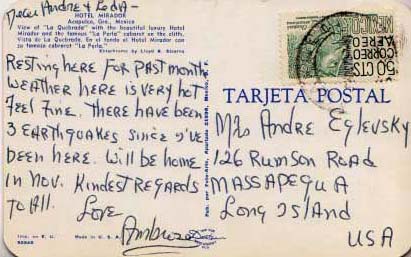 Dear Andre & Leda -
HOTEL MIRADOR
Acapulco, Gro., Mexico
View of "La Quebrada" with the beautiful luxury Hotel
Mirador and the famous "La Perla" cabaret on the cliffs.
Vista de La Quebrada. En el fondo el Hotel Mirador con
su famoso cabaret "La Perla."
RESTING HERE FOR PAST MONTH
WEATHER HERE IS VERY HOT
FEEL FINE. THERE HAVE BEEN
3 EARTHQUAKES SINCE I'VE
BEEN HERE. WILL BE HOME
IN NOV. KINDEST REGARDS
TO ALL. LOVE
Ambrose
Imp. en E. U.
Made in U. S. A.
MEXICO
CORREO
AEREO
50 CTS
TARJETA POSTAL
Mrs ANDRE EGLEVSKY
126 RUMSON ROAD
MASSAPEQUA
LONG ISLAND
USA